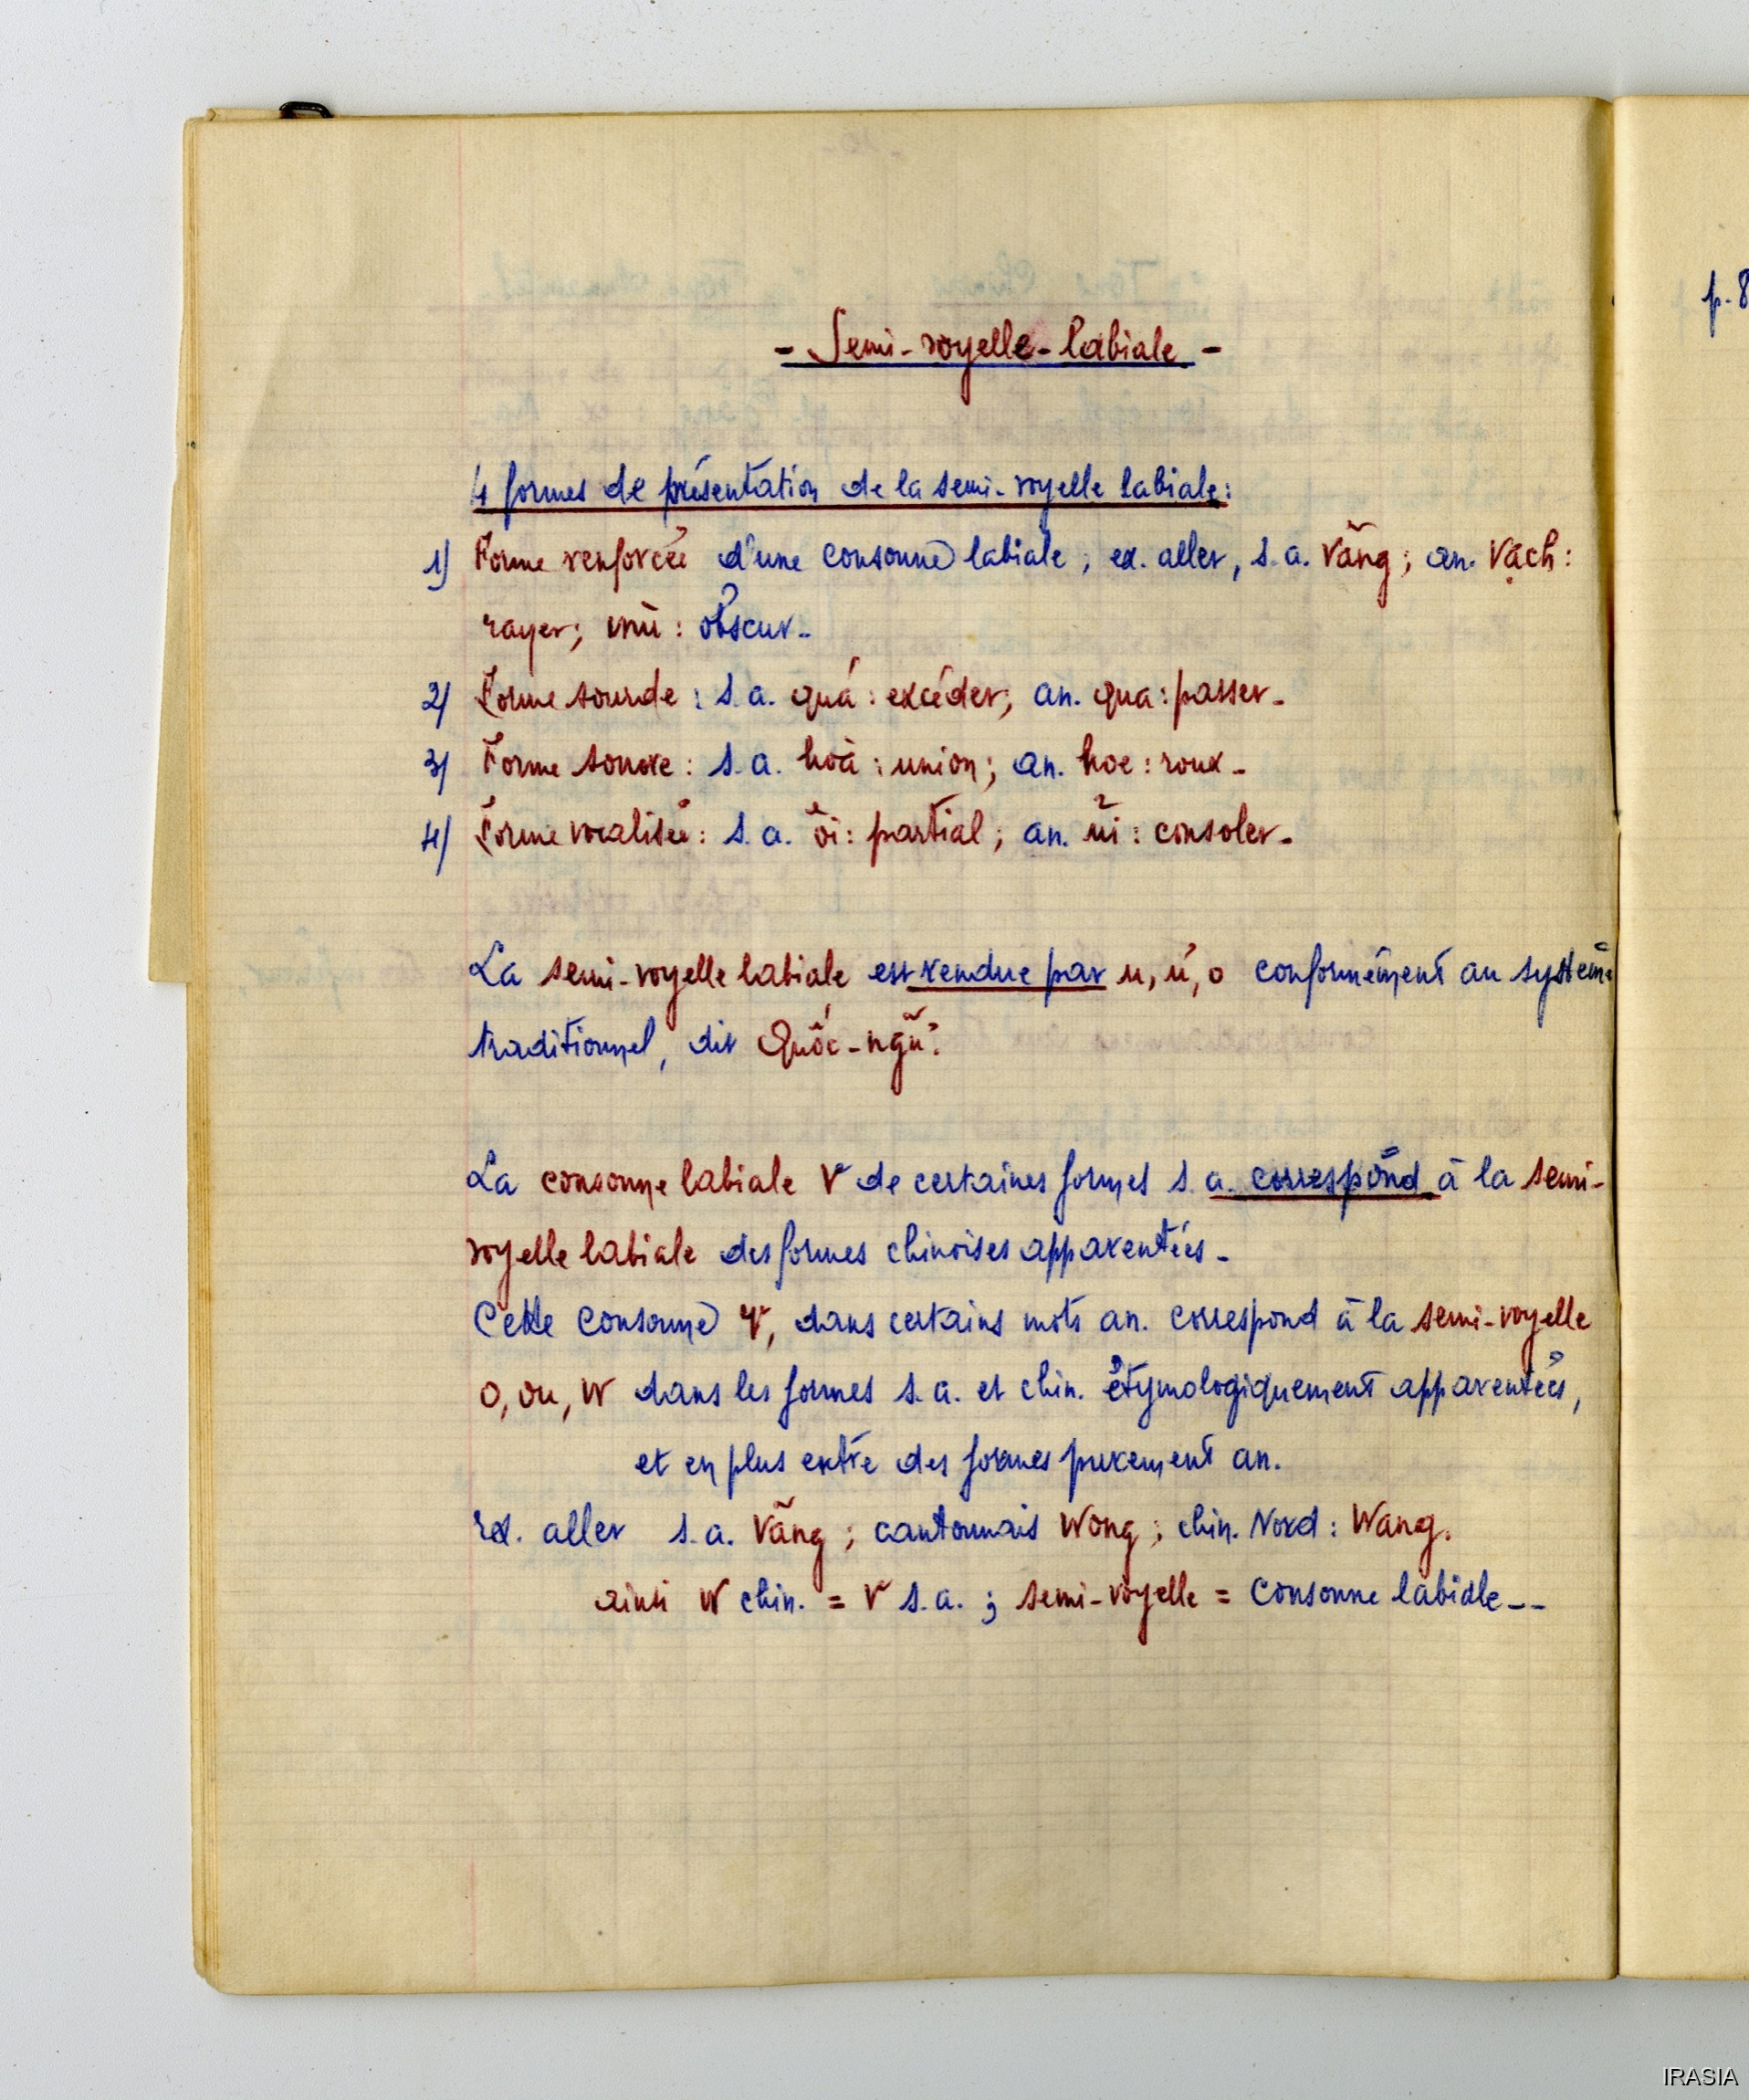 - Semi-voyelle-labiale -
4 formes de présentation de la semi-voyelle labiale:
1) Forme renforcée d'une consonne labiale; ex. aller, s.a. Vãng; an. Vạch:
rayer; mù: obscur.
2) Forme sourde: s.a. quá: excéder; an. qua: passer.
3) Forme sonore: s.a. hoà: union; an. hoe: roux.
4) Forme vocalisée: s.a. : partial; an. ủi: consoler.
La semi-voyelle labiale est rendue par u, ư, o conformément au système
traditionnel, dit Quốc-ngữ.
La consonne labiale V de certaines formes s.a. correspond à la semi-
voyelle labiale des formes chinoises apparentées.
Cette consonne V, dans certains mots an. correspond à la semi-voyelle
o, ou, W dans les formes s.a. et chin. étymologiquement apparentées,
et en plus entre des formes purement an.
ex. aller s.a. Vãng; cantonnais Wong; chin. Nord: Wang.
ainsi W chin. = V s.a.; semi-voyelle = Consonne labiale--
p. 8
IRASIA